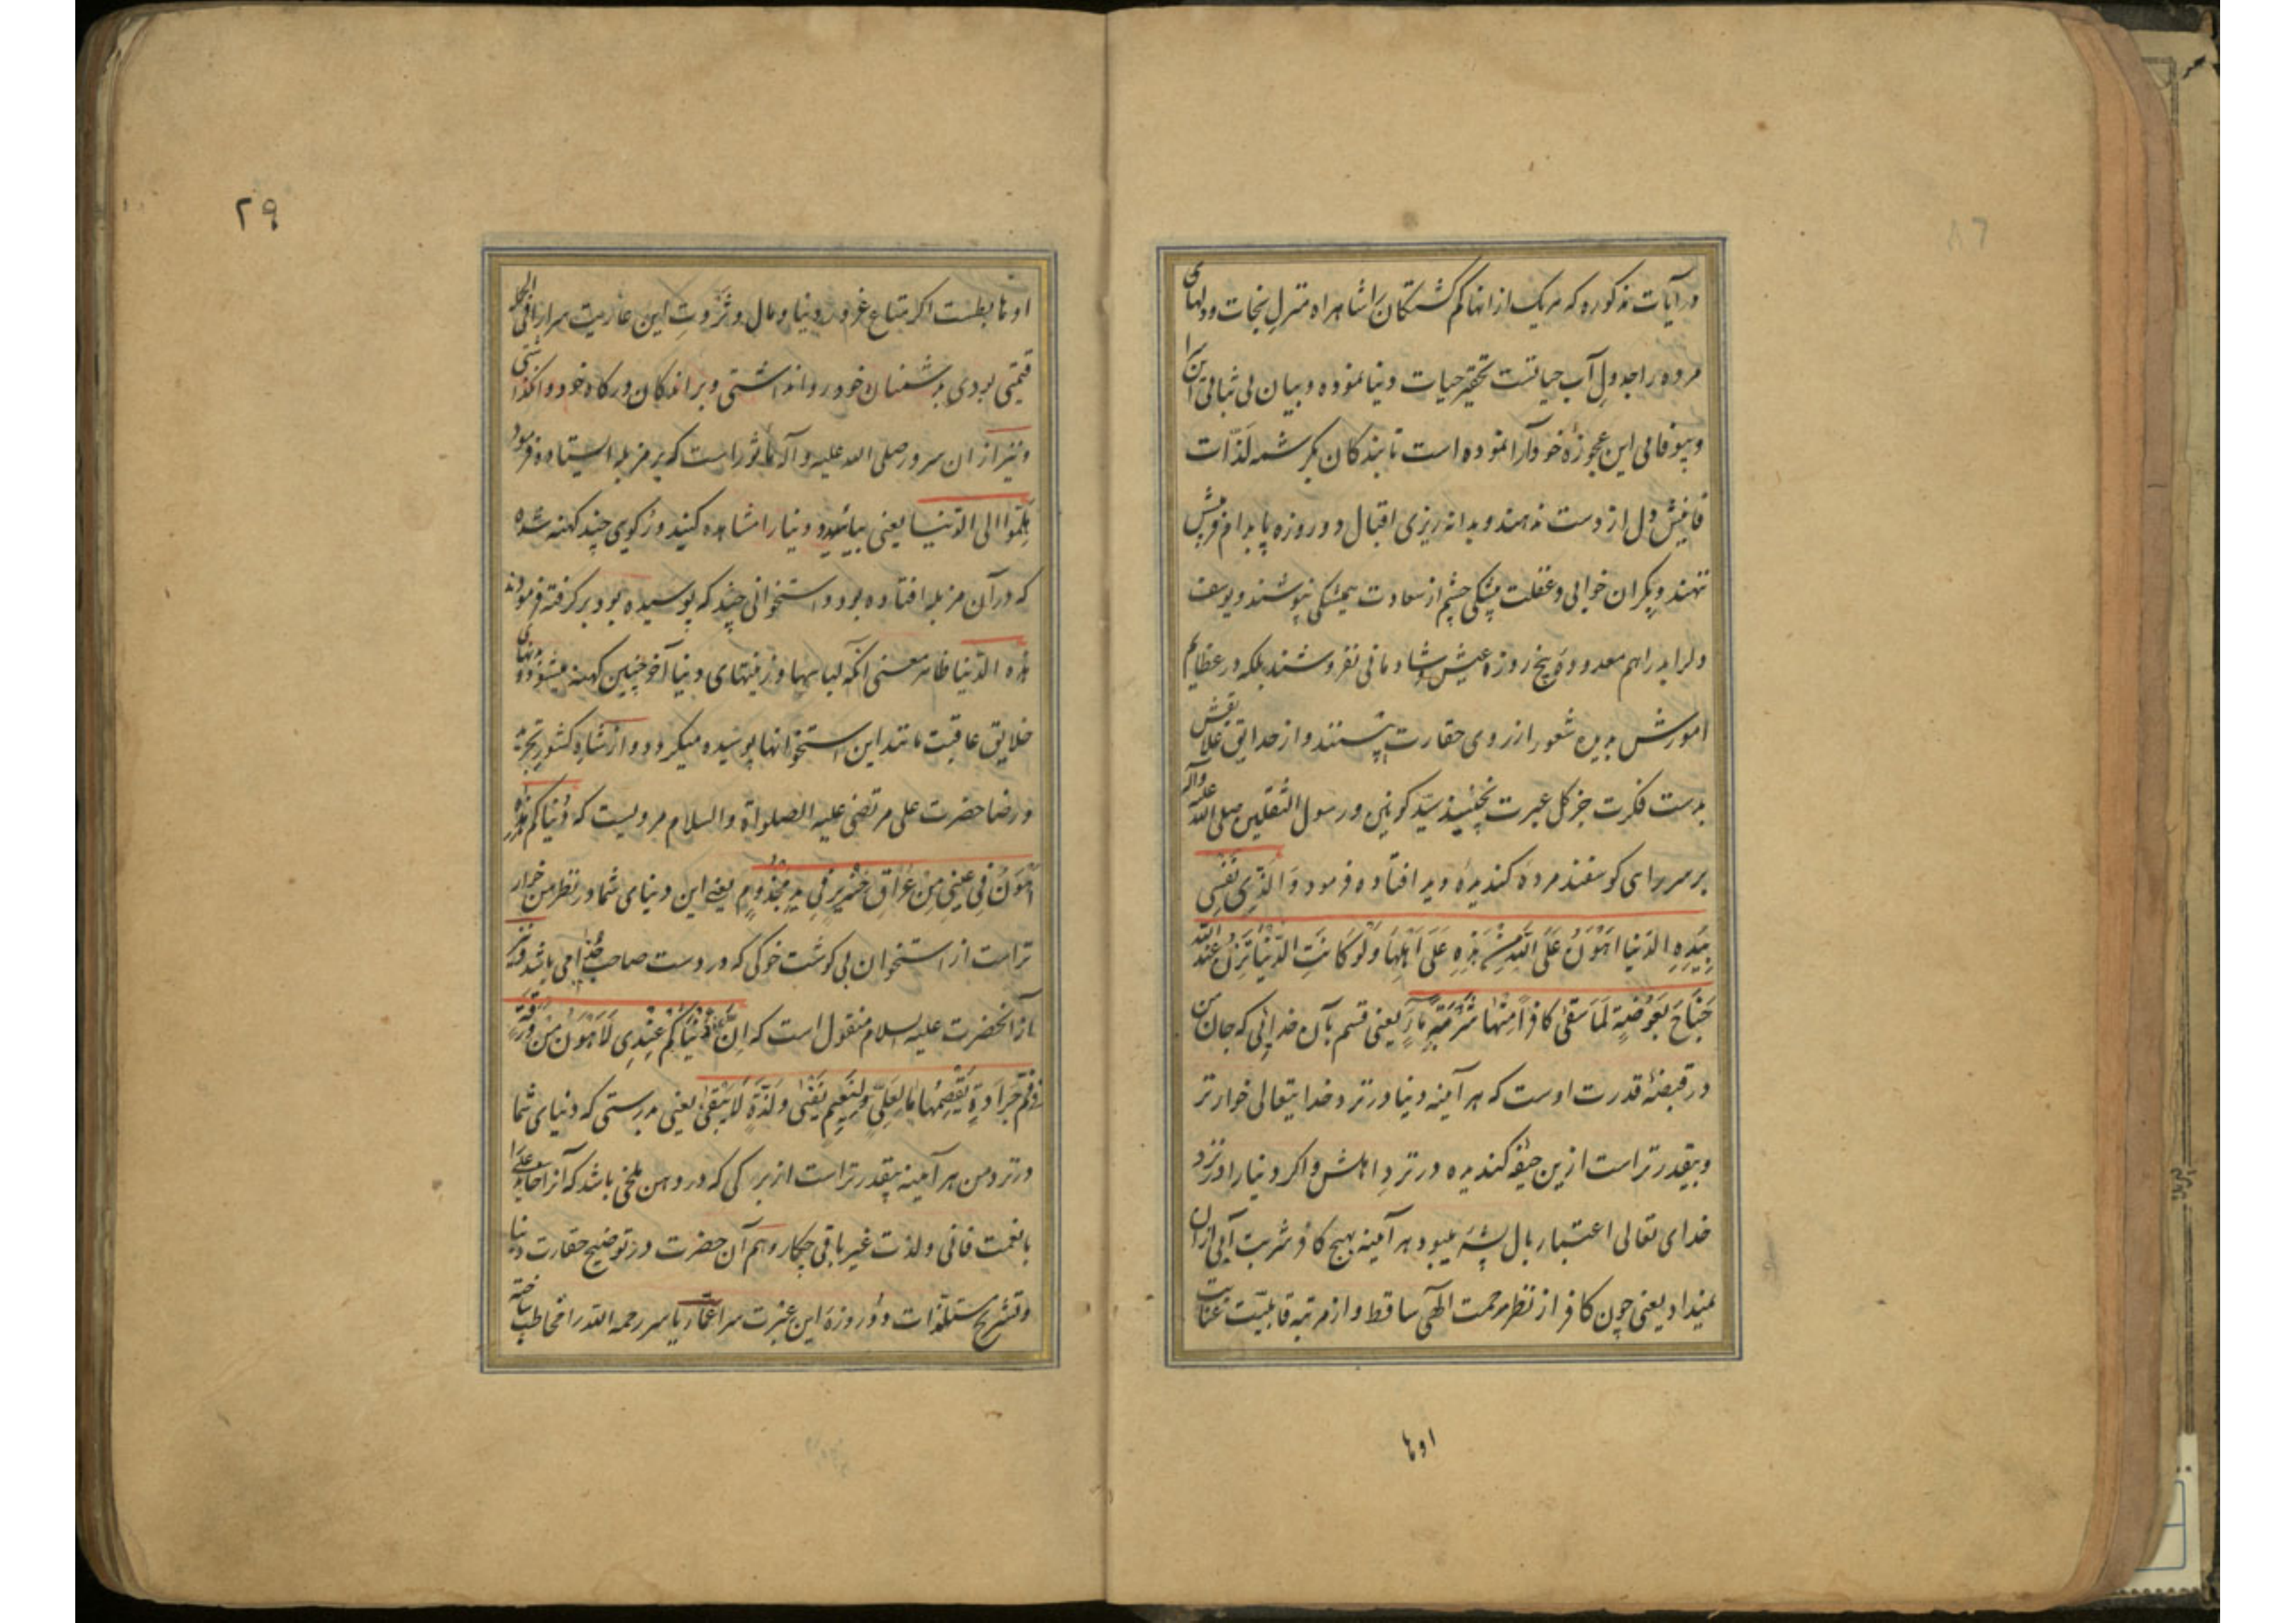 در آیات مذکوره که هر یک از انها کم کشتکان را شاهراه منزل نجات و دلهای
مرده را جدول آب حیاتست تحقیر حیات دنیا نموده و بیان بی ثباتی این
و بیوفائی این عجوزهٔ خودآرا نموده است تا بندکان بکرشمه لذّات
فانیش دل از دست ندهند و بدانه ریزی اقبال دو روزه پا بدام فریبش
ننهند و بکران خوابی و غفلت پیشکی چشم از سعادت همیشکی نپوشند و یوسف
دلرا بدراهم معدود و پنج روزه عیش و شادمانی نفروشند بلکه در عظایم
امورش بدیده شعور از روی حقارت بینند و از حدایق علایقش
بدست فکرت جز کل عبرت نچینند سیّد کونین و رسول الثقلین صلی الله علیه وآله
بر سر راهی کوسفند مردهٔ کندیدهٔ دید افتاده فرمود وَالَّذِی نَفْسِی
بِیَدِهِ الدّنیا اَهْوَنُ عَلَی اللّه مِنْ هٰذِهِ عَلَی اَهْلِهَا وَلَوْ کَانَتِ الدُّنْیَا تَزِنُ عِنْدَ اللّٰه
جَنَاحَ بَعُوضَةٍ لَمَا سَقٰی کافِراً مِنْهَا شَرْبَةَ مَاءٍ یعنی قسم بآن خدایی که جان من
در قبضهٔ قدرت اوست که هر آینه دنیا در نزد خدایتعالی خوارتر
و بیقدرتر است ازین جیفه کندیده در نزد اهلش و اکر دنیا را در نزد
خدای تعالی اعتبار بال پشهٔ میبود هر آینه بهیچ کافر شربت آبی ازان
نمیداد یعنی چون کافر از نظر مرحمت الهی ساقط و از مرتبه قابلیّت عنایت
او ما
۲۹
او نا بطست اکر متاع غرور دنیا و مال و ثَرْوتِ این عاریت سرا را فی الجمله
قیمتی بودی بدشمنان خود روا نداشتی و براندکان درکاه خود وانکذاشتی
و نیز از ان سرور صلی الله علیه و آله مأثور است که بر مزبله ایستاده فرمود
هَلِمُّوا الی الدّنیا یعنی بیائید و دنیا را مشاهده کنید و زکوی چند کهنه شده
که در آن مزبله افتاده بود و استخوانی چند که پوسیده بود برکرفته فرمودند
هذه الدّنیا ظاهر معنی آنکه لباسها و زینتهای دنیا آخر چنین کهنه میشود و تنهای
خلایق عاقبت مانند این استخوانها پوسیده میکردد و از شاه کشور تجربه
و رضا حضرت علی مرتضی علیه الصلوٰة والسلام مرویست که دُنْیَاکم هٰذِه
اَهْوَنُ فِی عَیْنِی مِنْ عُرَاقِ خَنْزِیرٍ فِی یَدِ مَجْذُومٍ یعنی این دنیای شما در نظر من خوار
تر است از استخوان بی کوشت خوکی که در دست صاحب جُذامی باشد و نیز
از آنحضرت علیه السلام منقول است که اِنَّ دُنْیَاکُمْ عِنْدِی لَاَهْوَنُ مِنْ وَرَقَةٍ
فِی فَمِ جَرَادَةٍ تَقْضَمُهَا مَا لِعَلِیٍّ وَلِنَعِیمٍ یَفْنٰی وَلَذَّةٍ لَا تَبْقٰی یعنی بدرستی که دنیای شما
در نزد من هر آینه بیقدرتر است از برکی که در دهن ملخی باشد که آنرا خاید علی را
با نعمت فانی و لذت غیر باقی چکار و هم آن حضرت در توضیح حقارت دنیا
و تشریح مستلذّات دو روزهٔ این عبرت سرا عمّار یاسر رحمه اللّه را مخاطب ساخته